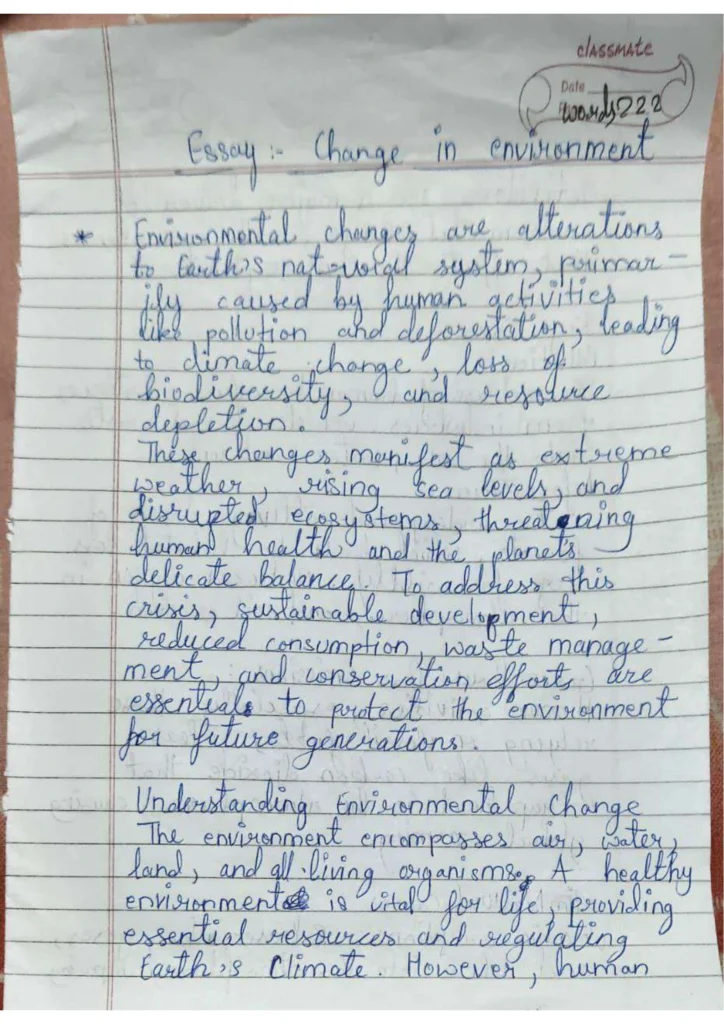 classmate
Date
Words 222
Essay :- Change in environment
* Environmental changes are alterations
to Earth's natural system, primar-
ily caused by human activities
like pollution and deforestation, leading
to climate change, loss of
biodiversity, and resource
depletion.
These changes manifest as extreme
weather, rising sea levels, and
disrupted ecosystems, threatening
human health and the planet's
delicate balance. To address this
crisis, sustainable development,
reduced consumption, waste manage-
ment, and conservation efforts are
essentials to protect the environment
for future generations.
Understanding Environmental Change
The environment encompasses air, water,
land, and all living organisms. A healthy
environment is vital for life, providing
essential resources and regulating
Earth's Climate. However, human